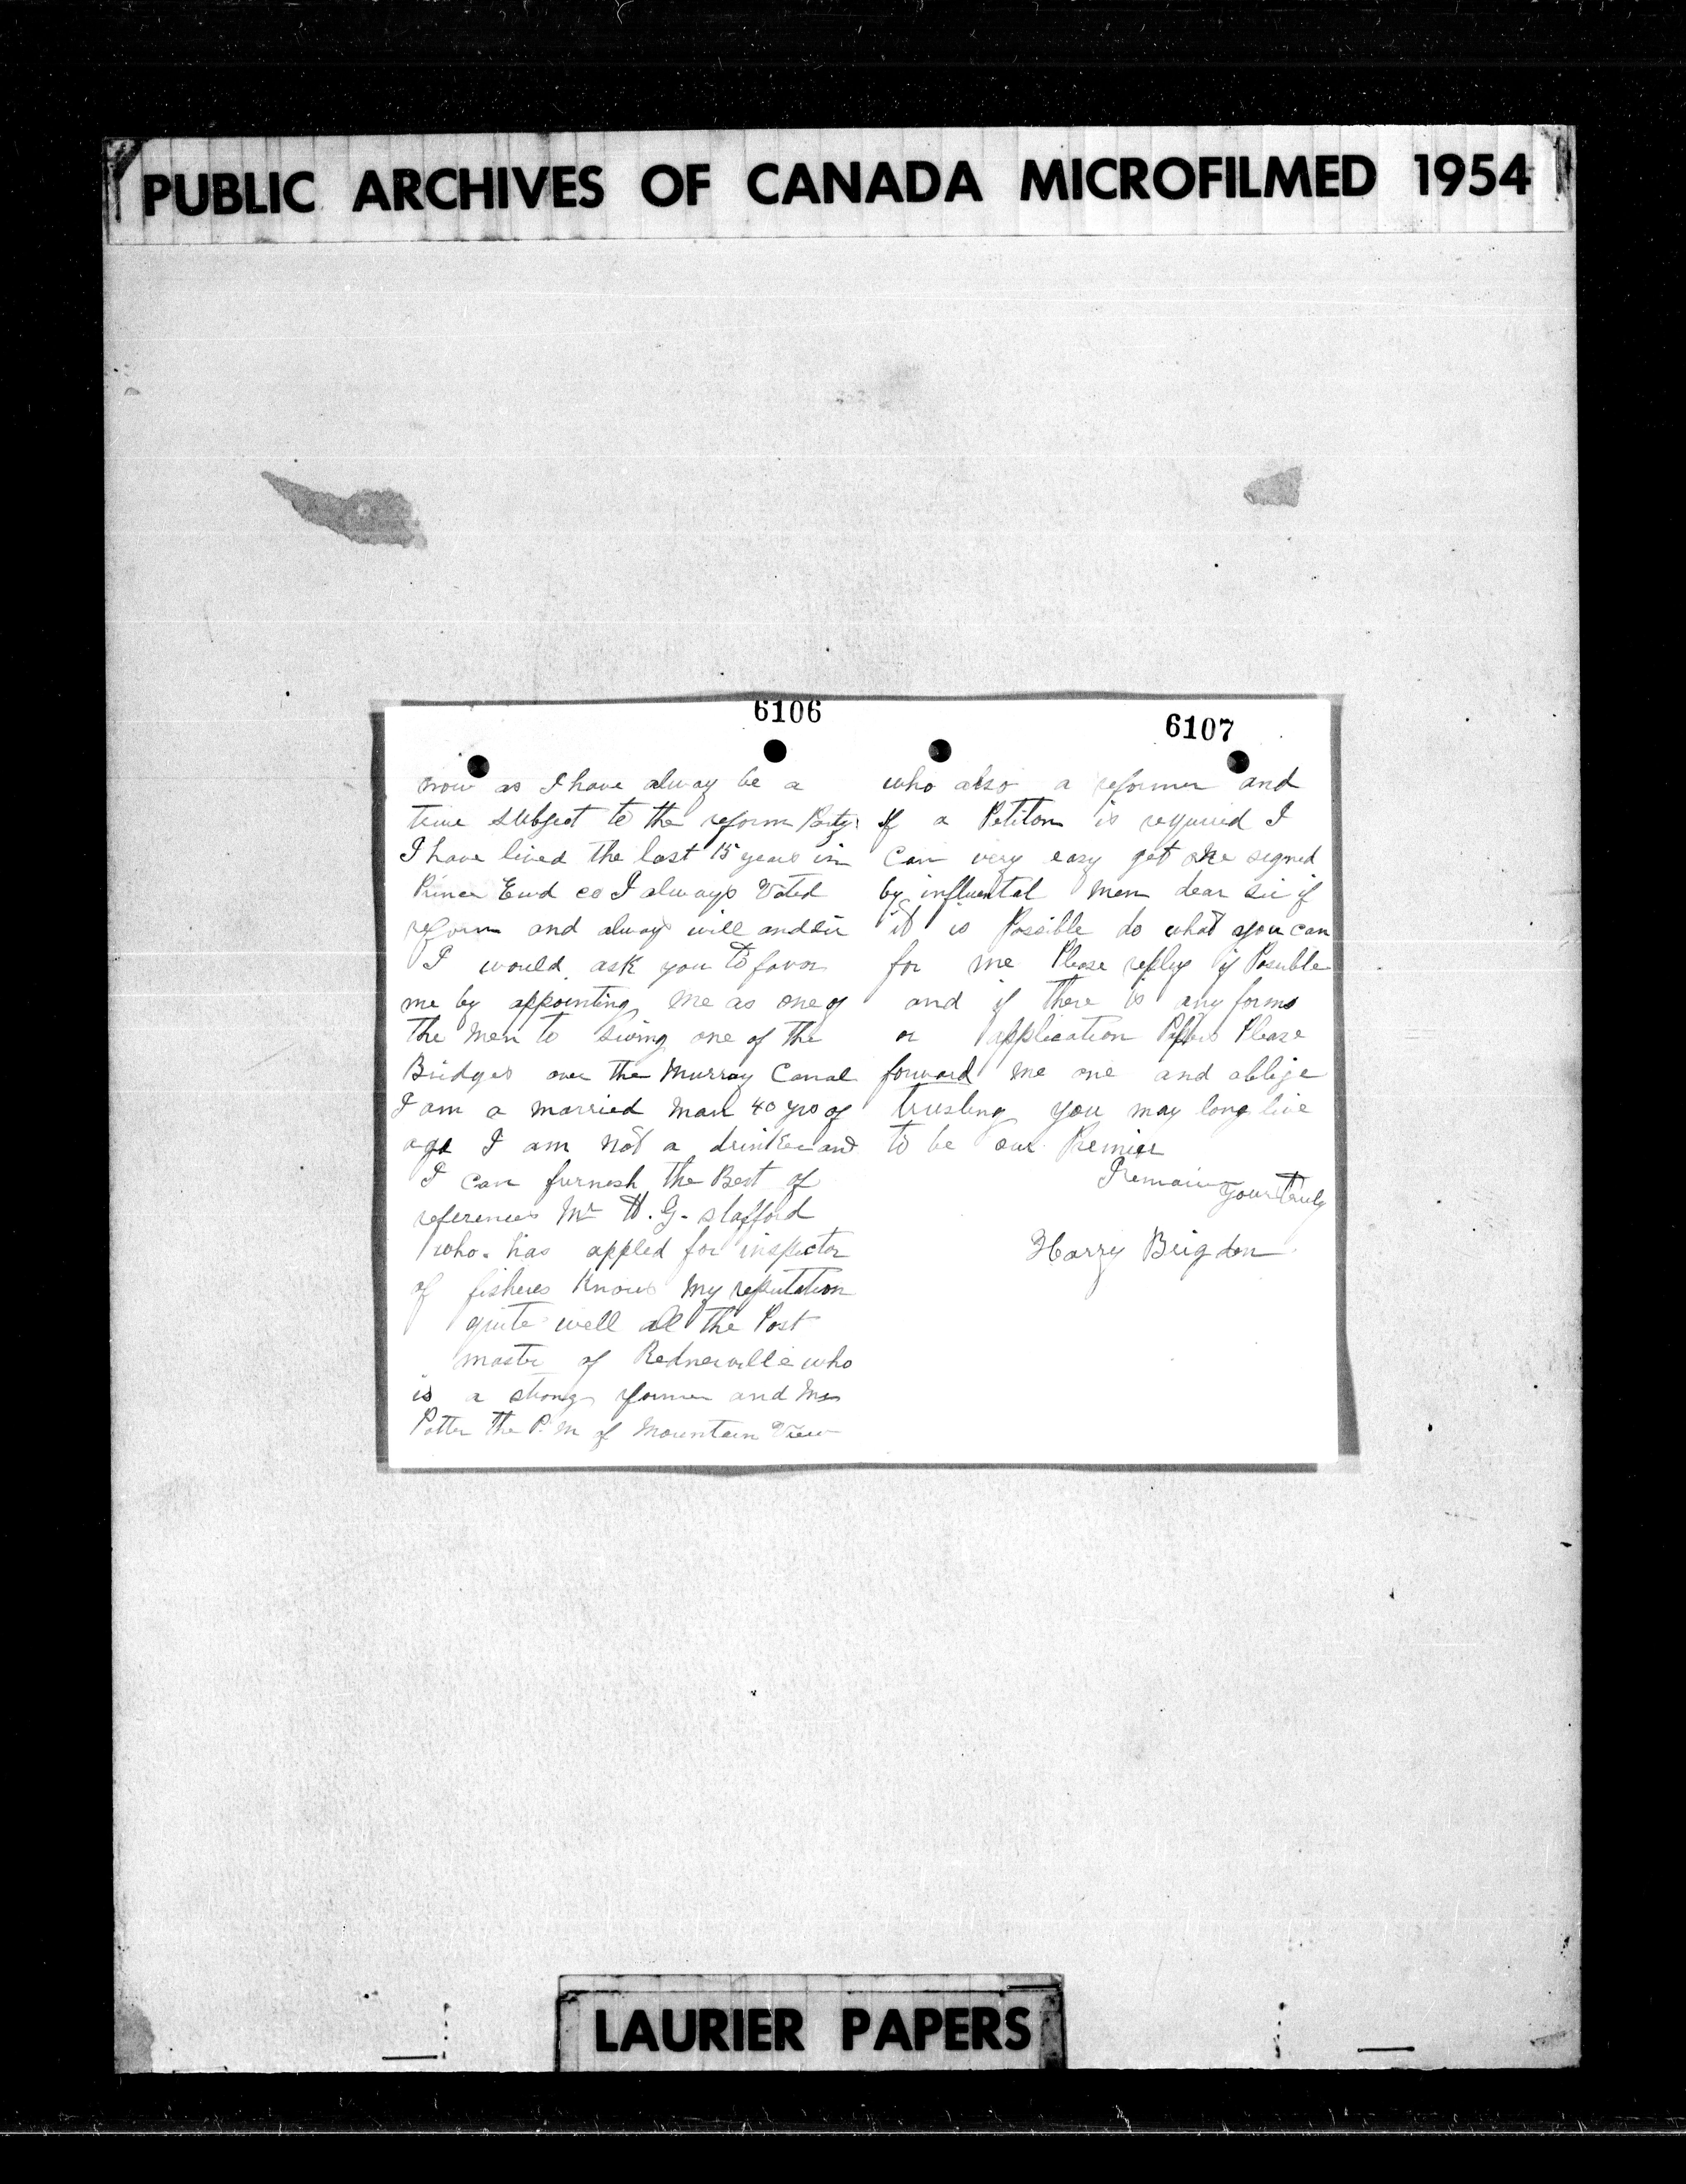 PUBLIC ARCHIVES OF CANADA MICROFILMED 1954
6106
now as I have alway be a
true subject to the reform Party
I have lived the last 15 years in
Prince Ewd co I always Voted
reform and alway will and sir
I would ask you to favor
me by appointing me as one of
the men to swing one of the
Bridges over the Murray Canal
I am a married man 40 yrs of
age I am not a drinker and
I can furnesh the Best of
references Mr H. G. Stafford
who has appled for inspector
of fisheres Knows my reputation
quite well all the Post
master of Rednerville who
is a strong former and
Potter the P. M of Mountain View
6107
who also a reformer and
If a Petiton is required I
can very easy get one signed
by influental men dear sir if
it is Possible do what you can
for me Please reply if Possible
and if there is any forms
or application Papers Please
forward me one and oblige
trusting you may long live
to be our Premier
I remain
yours truly
Harry Brigden
LAURIER PAPERS